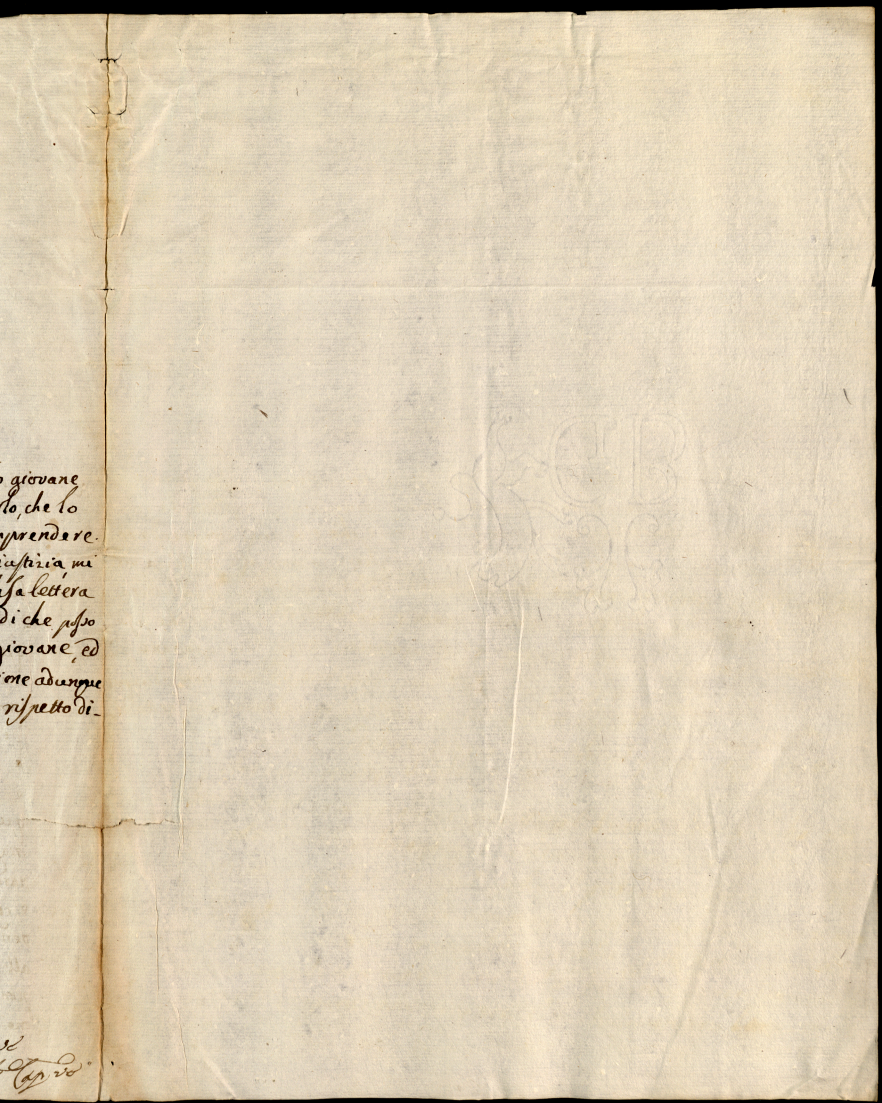 giovane
che lo
pprendere.
iustizia, mi
sa lettera
di che posso
giovane, ed
ione adunque
rispetto di-